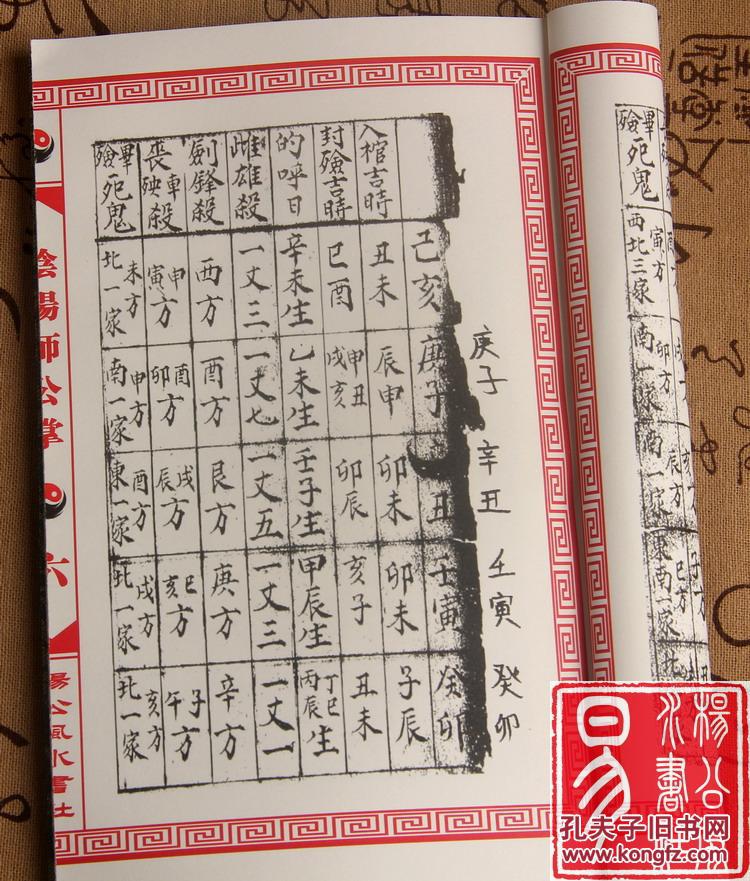 入棺吉時
封殮吉時
的呼日
雌雄殺
劍鋒殺
喪車殃殺
殮畢死鬼
己亥
丑未
巳酉
辛未生
一丈三
西方
寅申方
北一家
未方
庚子
辰申
甲丑戌亥
乙未生
一丈七
酉方
卯酉方
南一家
申方
丑
卯未
卯辰
壬子生
一丈五
艮方
辰戌方
東一家
酉方
壬寅
卯未
亥子
甲辰生
一丈三
庚方
亥巳方
北一家
戌方
癸卯
子辰
丑未
丁巳丙辰生
一丈一
辛方
午子方
北一家
亥方
庚子
辛丑
壬寅
癸卯
陰陽師公掌
六
楊公風水書社
殮畢死鬼
寅方
西北三家
卯方
南一家
辰方
南一家
巳方
東南一家
易
孔夫子旧书网
www.kongfz.com